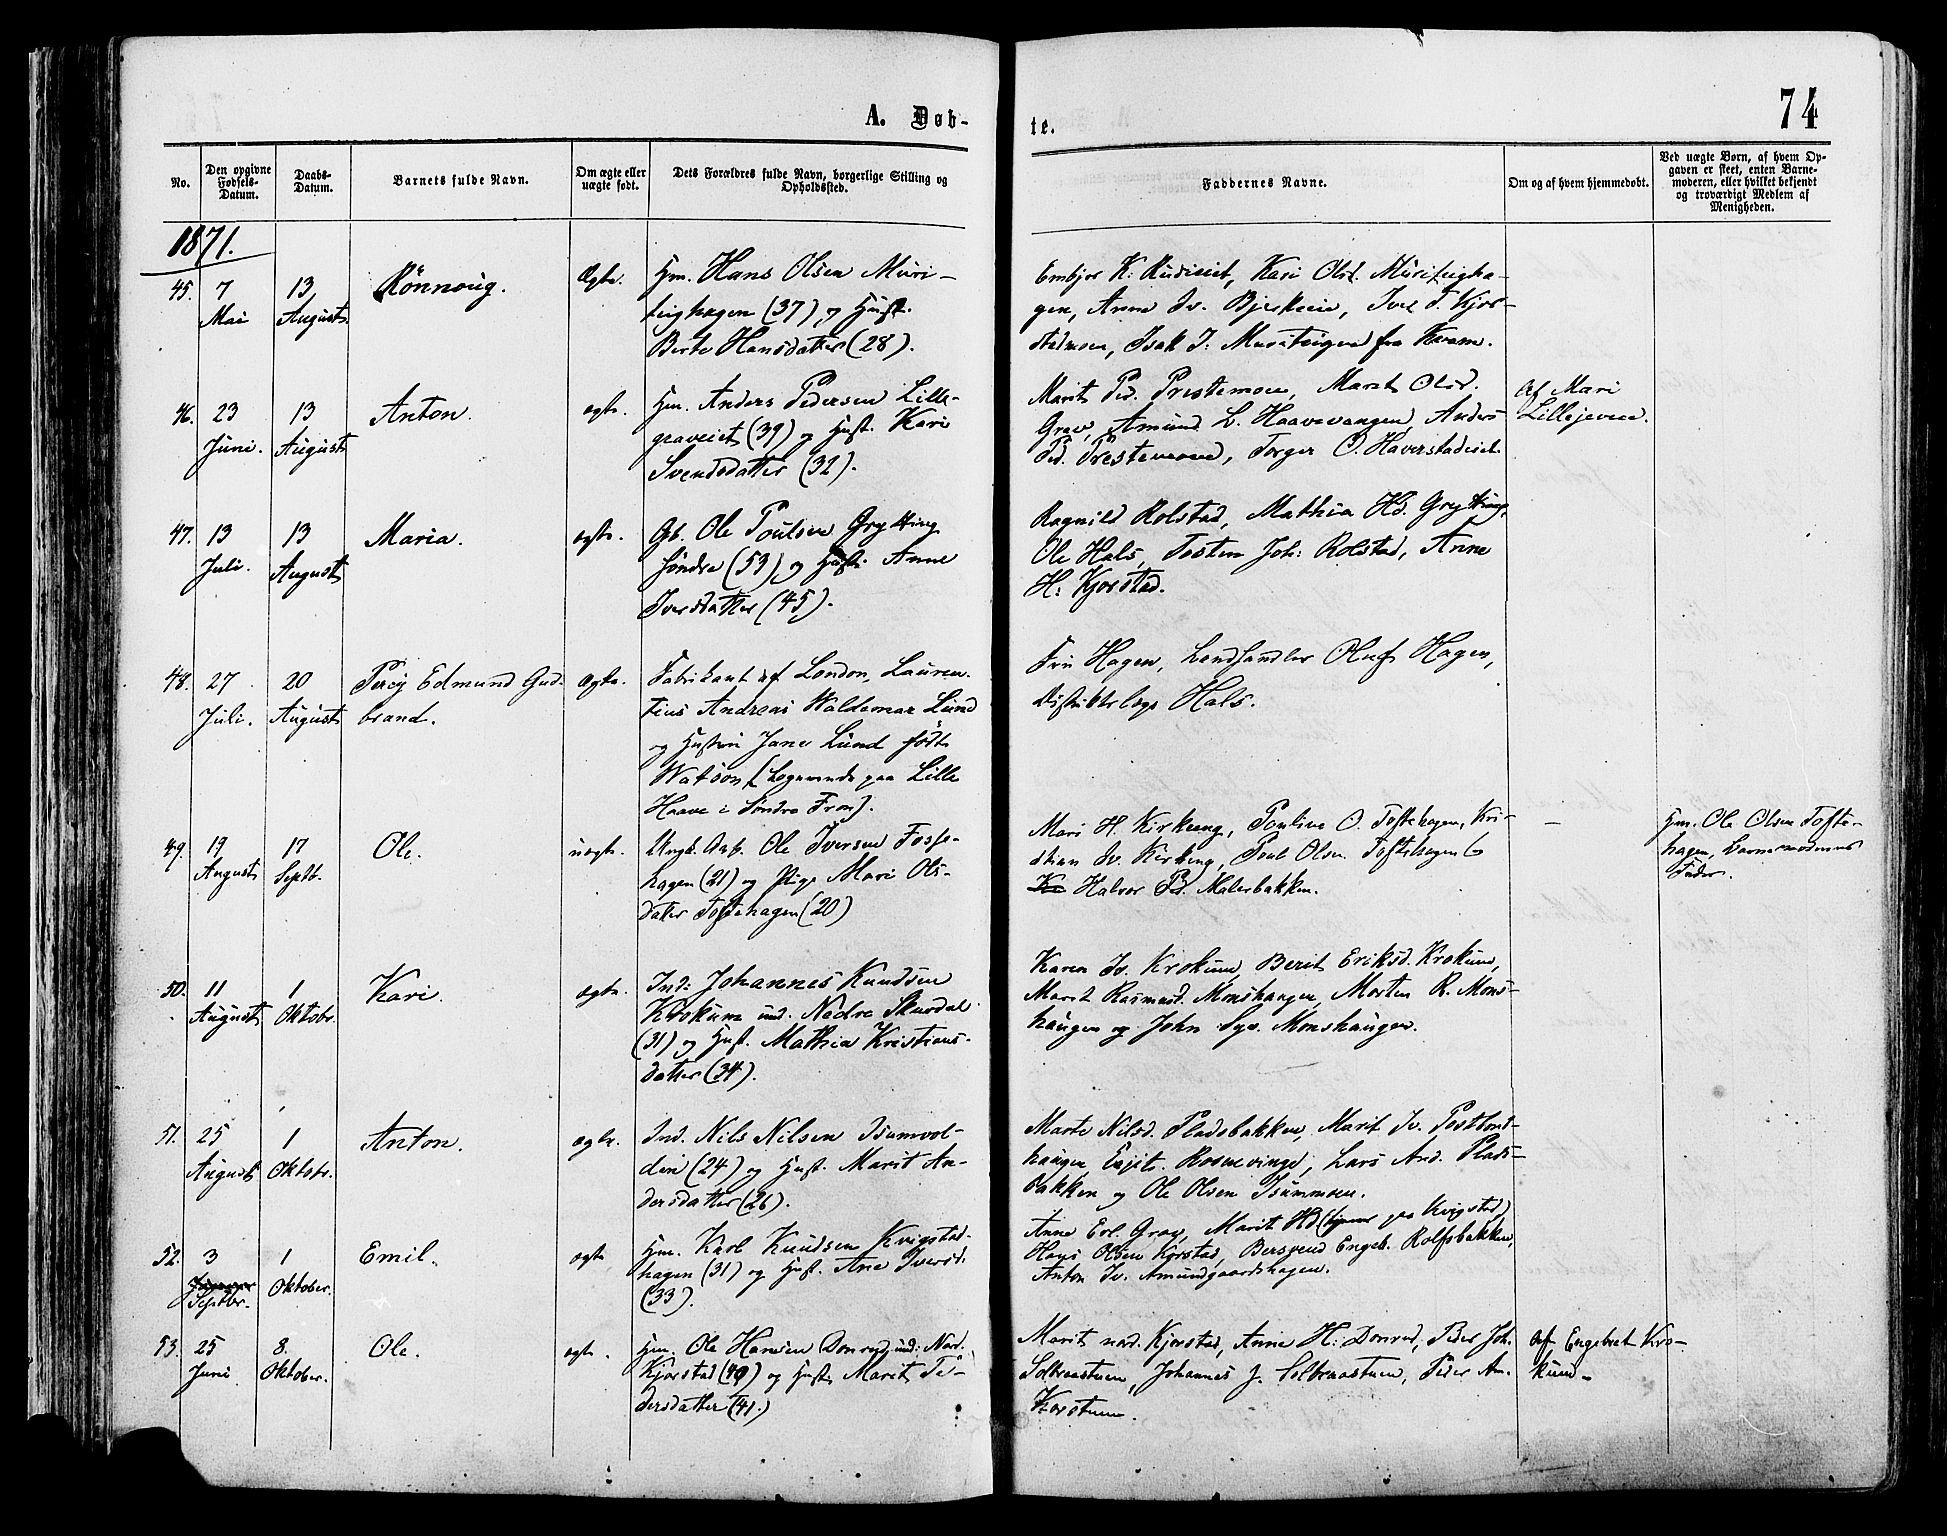 A. Døb-
te.
74
No.
Den opgivne Fødsels-Datum.
Daabs-Datum.
Barnets fulde Navn.
Om ægte eller uægte født.
Dets Forældres fulde Navn, borgerlige Stilling og Opholdssted.
Faddernes Navne.
Om og af hvem hjemmedøbt.
Ved uægte Børn, af hvem Op-
gaven er skeet, enten Barne-
moderen, eller hvilket bekjendt
og troværdigt Medlem af
Menigheden.
1871.
45. 7 Mai
13 August
Rönnoug.
Ægte.
Hm. Hans Olsen Muri-
teighagen (37) og Hust.
Berte Hansdatter (28).
Embjør K. Rudiseiet, Kari Olsd. Muriteigha-
gen, Anne Iv. Bjerkeie, Iver T. Kjør-
stadmoen, Isak I. Muriteigen fra Kvam.
46. 23 Juni.
13 August
Anton.
ægte.
Hm. Anders Pedersen Lille-
graveiet (39) og Hust. Kari
Svendsdatter (32).
Marit Ped. Prestemoen, Marit Olsd.
Grav, Amund L. Haavevangen, Anders
Ped. Prestemoen, Torger O. Haverstadeiet.
Af Mari
Lillejeveie.
47. 13 Juli.
13 August
Maria.
ægte.
Gb. Ole Poulsen Grytting
søndre (53) og Hust. Anne
Iversdatter (45).
Ragnild Rolstad, Mathia Hd. Grytting,
Ole Hals, Tosten Joh. Rolstad, Anne
H. Kjorstad.
48. 27 Juli.
20 August
Percy Edmund Gud-
brand.
Ægte.
Fabrikant af London, Lauren-
tius Andreas Waldemar Lund
og Hustru Jane Lund født
Watson [Logerende paa Lille
Haave i Søndre Fron].
Fru Hagen, Landhandler Oluf Hagen,
Distriktslæge Hals.
49. 19 August
17 Septb.
Ole.
uægte.
Ungk. Arb. Ole Iversen Fosse-
hagen (21) og Pige Mari Ols-
datter Toftehagen (20)
Mari H. Kirkeeng, Pouline O. Toftehagen, Kri-
stian Iv. Kirkeng, Poul Olsen Toftehagen
Halvor Pd. Malerbakken.
–
Hm. Ole Olsen Tofte-
hagen, Barnemoderens
Fader.
50. 11 August
1 Oktobr.
Kari.
ægte.
Ind. Johannes Knudsen
Krokum und. Nedre Skurdal
(31) og Hust. Mathia Kristians-
datter (34).
Karen Iv. Krokum, Berit Eriksd. Krokum,
Marit Rasmusd. Monshaugen, Morten R. Mons-
haugen og John Syv. Monshaugen.
51. 25 August
1 Oktobr.
Anton.
ægte.
Ind. Nils Nilsen Isumvol-
den (24) og Hust. Marit An-
dersdatter (26).
Marte Nilsd. Pladsbakken, Marit Iv.
haugen, Lars And. Plads-
bakken og Ole Olsen Isummoen.
52. 3 Septbr.
1 Oktober.
Emil.
ægte
Hm. Karl Knudsen Kvigstad-
hagen (31) og Hust. Ane Iversd.
(33).
Anne Erl. Grav, Marit Hd (tjener paa Kvigstad)
Hans Olsen Kjorstad, Bersvend Engeb. Rolfsbakken,
Anton Iv. Amundgaardshagen.
53. 25 Juni
8. Oktober.
Ole.
ægte.
Hm. Ole Hansen Donrud und. Nord.
Kjorstad (49) og Hust. Marit Pe-
dersdatter (41.)
Marit nord. Kjorstad, Anne H. Donrud, Peder Joh.
Solbraastuen, Johannes J. Solbraastuen, Peder An.
Korstuen.
af Engebret Kro-
kum.